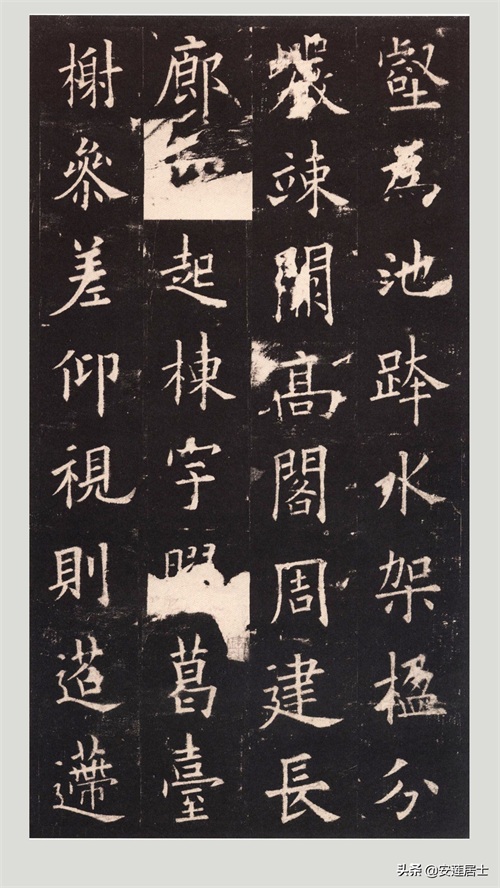 壑為池跨水架楹分
巖竦闕高閣周建長
廊起棟宇葛臺
榭參差仰視則迢遰
头条 @安莲居士